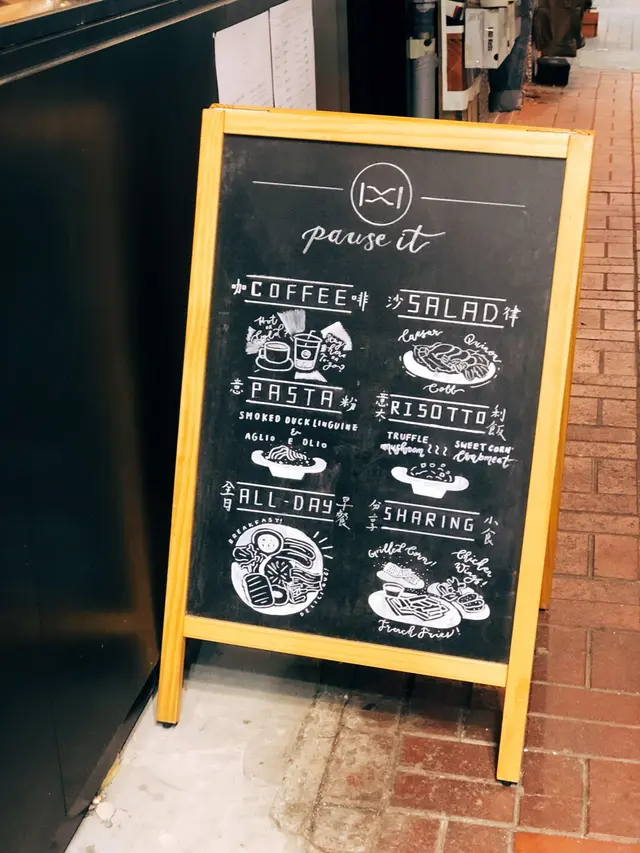 pause it
咖 COFFEE 啡
Hot
or
Cold?
沙 SALAD 律
Caesar
Quinoa
Cobb
意 PASTA 粉
SMOKED DUCK LINGUINE
&
AGLIO E OLIO
意大 RISOTTO 利飯
TRUFFLE
mushroom
SWEET CORN
Crabmeat
全日 ALL-DAY 早餐
BREAKFAST!
分享 SHARING 小食
Grilled Corn!
Chicken
Wings!
French Fries!